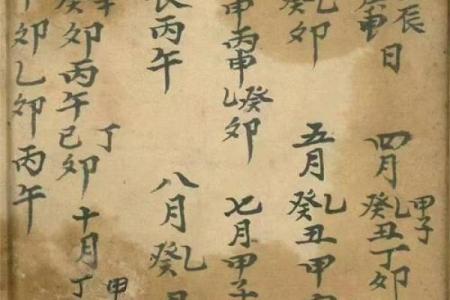 辰
庚申日 四月 甲子 癸丑 乙 丁卯
癸卯 乙 五月 癸丑 乙 甲
甲申 丙申 乙卯 癸 七月 甲子
辰 丙午 八月 癸 乙
癸卯 丙午 己卯 丁 十月 丁 甲
卯 乙卯 丙午